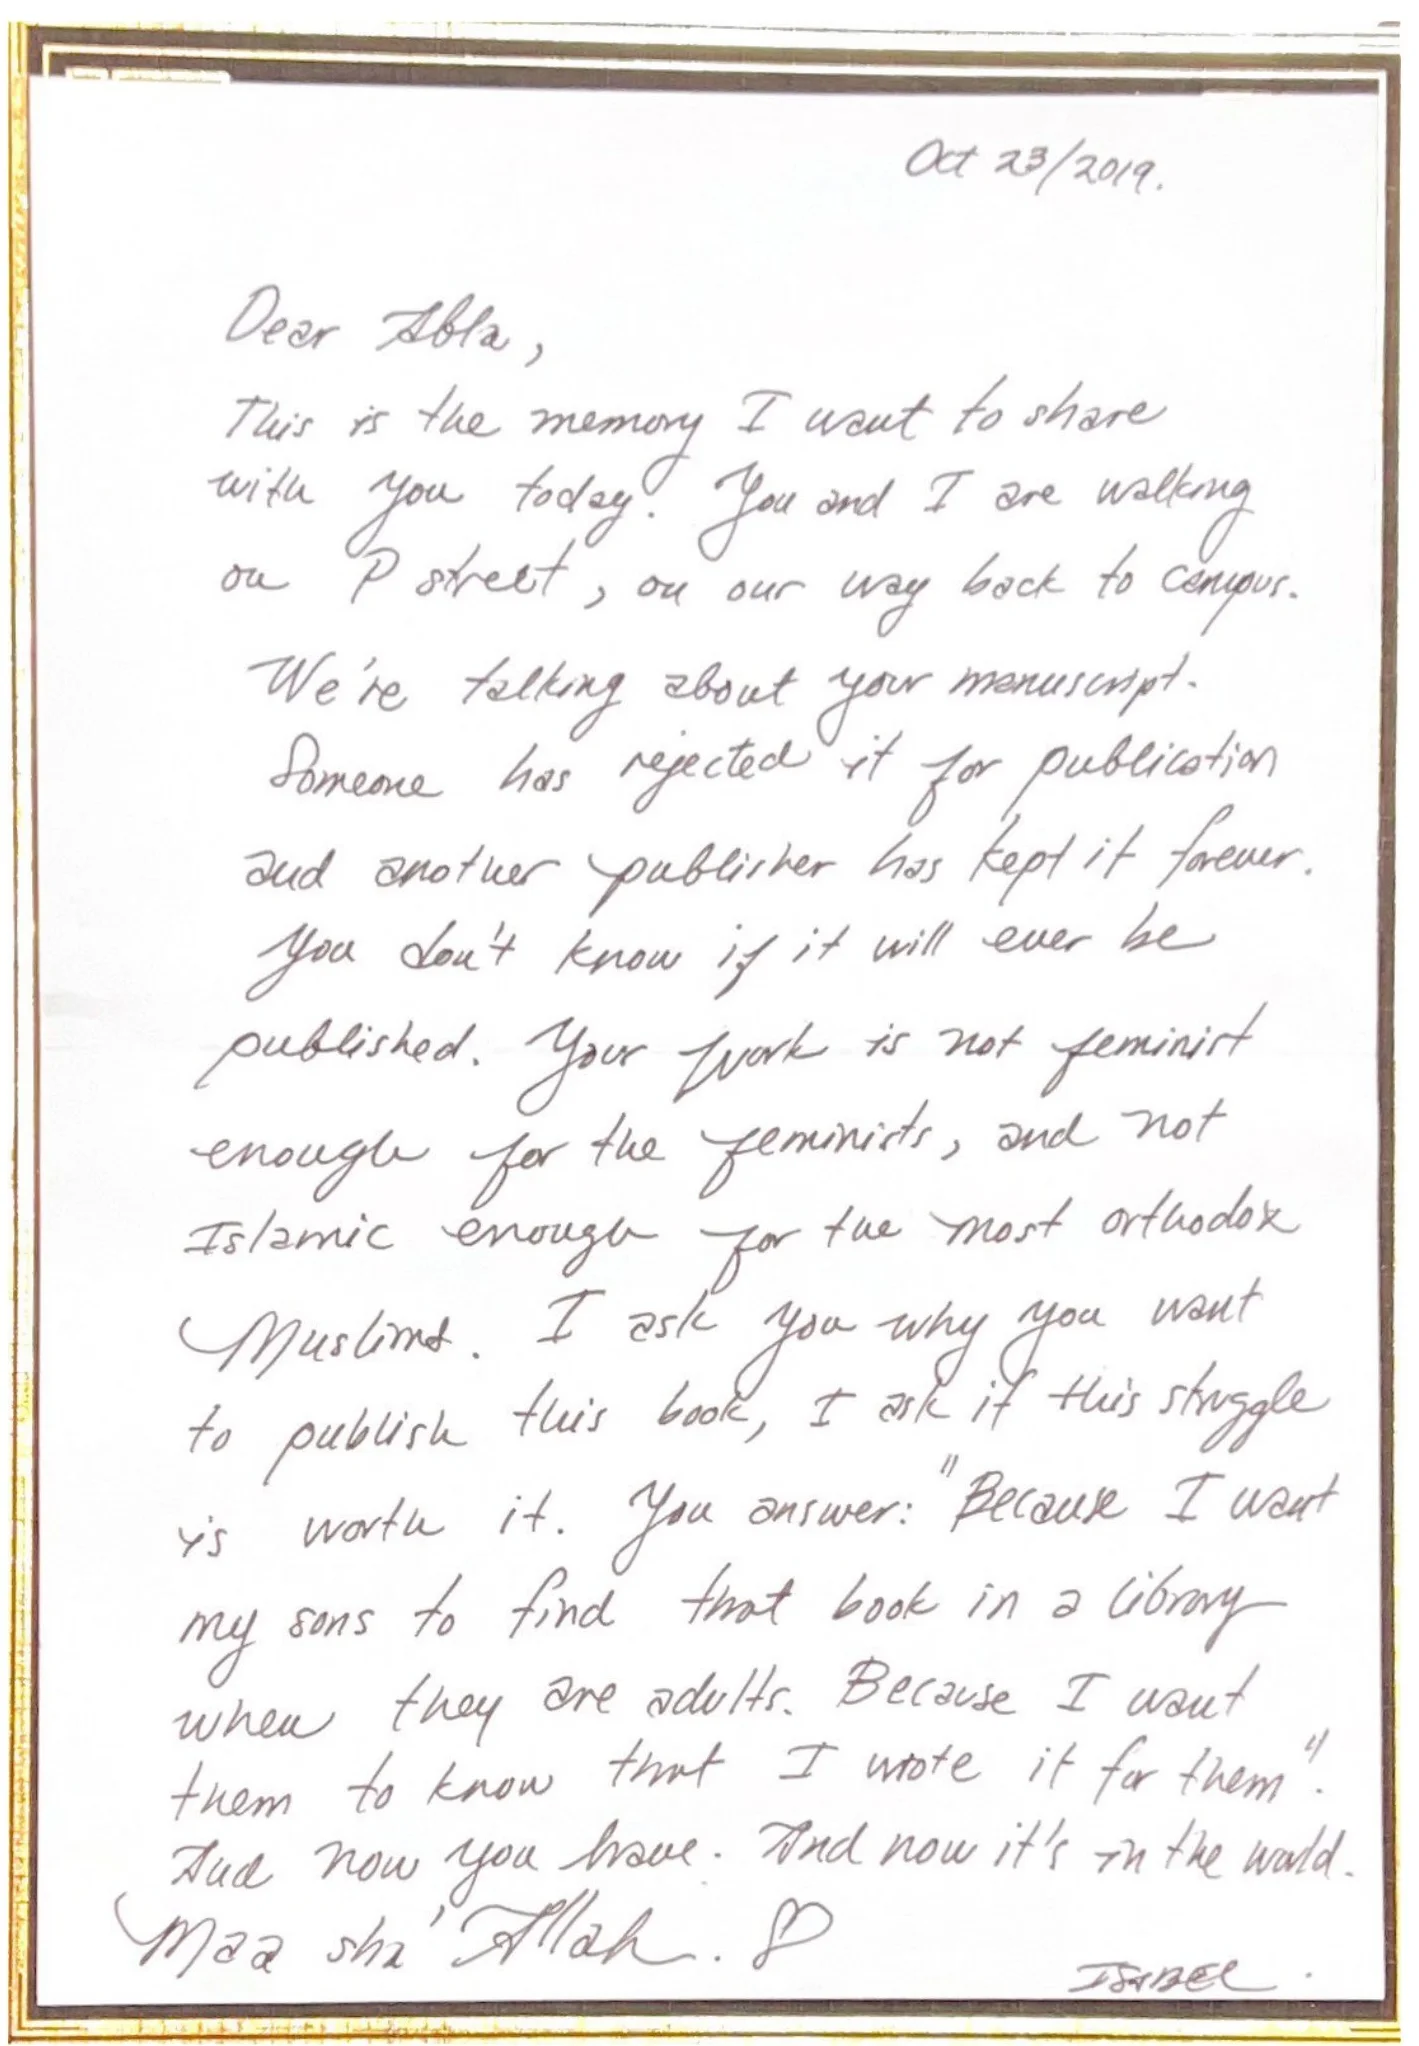 Oct 23/2019.
Dear Abla,
This is the memory I want to share
with you today. You and I are walking
on P street, on our way back to campus.
We're talking about your manuscript.
Someone has rejected it for publication
and another publisher has kept it forever.
You don't know if it will ever be
published. Your work is not feminist
enough for the feminists, and not
Islamic enough for the most orthodox
Muslims. I ask you why you want
to publish this book, I ask if this struggle
is worth it. You answer: "Because I want
my sons to find that book in a library
when they are adults. Because I want
them to know that I wrote it for them".
And now you have. And now it's in the world.
Maa sha' Allah.
ISABEL.